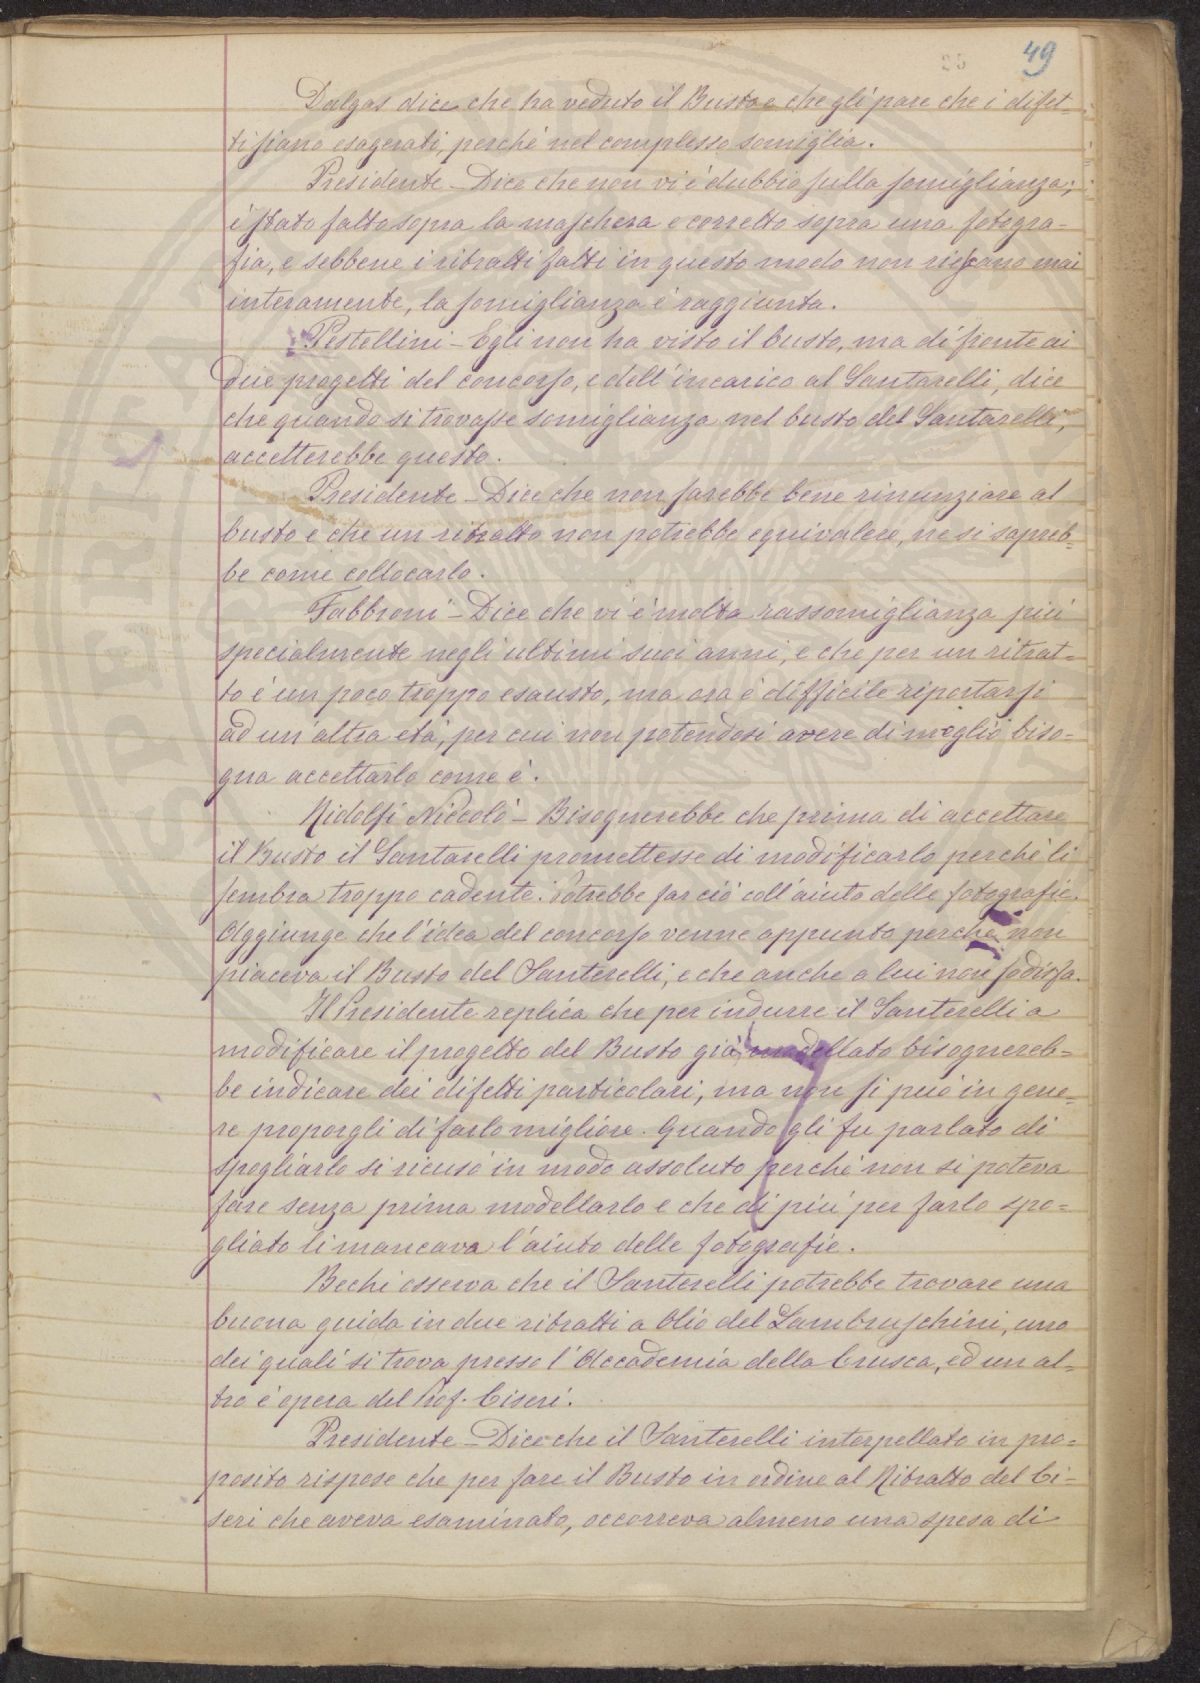 25 49
Dalgas dice che ha veduto il Busto e che gli pare che i difet=
ti siano esagerati, perché nel complesso somiglia.
Presidente – Dice che non vi è dubbio sulla somiglianza;
è stato fatto sopra la maschera e corretto sopra una fotogra=
fia, e sebbene i ritratti fatti in questo modo non riescano mai
interamente, la somiglianza è raggiunta.
Pestellini – Egli non ha visto il busto, ma di fronte ai
due progetti del concorso, e dell'incarico al Santarelli, dice
che quando si trovasse somiglianza nel busto del Santarelli,
accetterebbe questo.
Presidente – Dice che non sarebbe bene rinunziare al
busto e che un ritratto non potrebbe equivalere, ne si sapreb=
be come collocarlo.
Fabbroni – Dice che vi è molta rassomiglianza più
specialmente negli ultimi suoi anni, e che per un ritrat=
to è un poco troppo esausto, ma ora è difficile riportarsi
ad un'altra età, per cui non potendosi avere di meglio biso=
gna accettarlo come è.
Ridolfi Niccolò – Bisognerebbe che prima di accettare
il Busto il Santarelli promettesse di modificarlo perché li
sembra troppo cadente. Potrebbe far ciò coll'aiuto delle fotografie.
Aggiunge che l'idea del concorso venne appunto perché non
piaceva il Busto del Santerelli, e che anche a lui non sodisfa.
Il Presidente replica che per indurre il Santerelli a
modificare il progetto del Busto già modellato bisognereb=
be indicare dei difetti particolari, ma non si può in gene=
re proporgli di farlo migliore. Quando gli fu parlato di
spogliarlo si ricusò in modo assoluto perché non si poteva
fare senza prima modellarlo e che di più per farlo spo=
gliato li mancava l'aiuto delle fotografie.
Bechi osserva che il Santerelli potrebbe trovare una
buona guida in due ritratti a Olio del Lambruschini, uno
dei quali si trova presso l'Accademia della Crusca, ed un al=
tro è opera del Prof. Ciseri.
Presidente – Dice che il Santerelli interpellato in pro=
posito rispose che per fare il Busto in ordine al Ritratto del Ci=
seri che aveva esaminato, occorreva almeno una spesa di